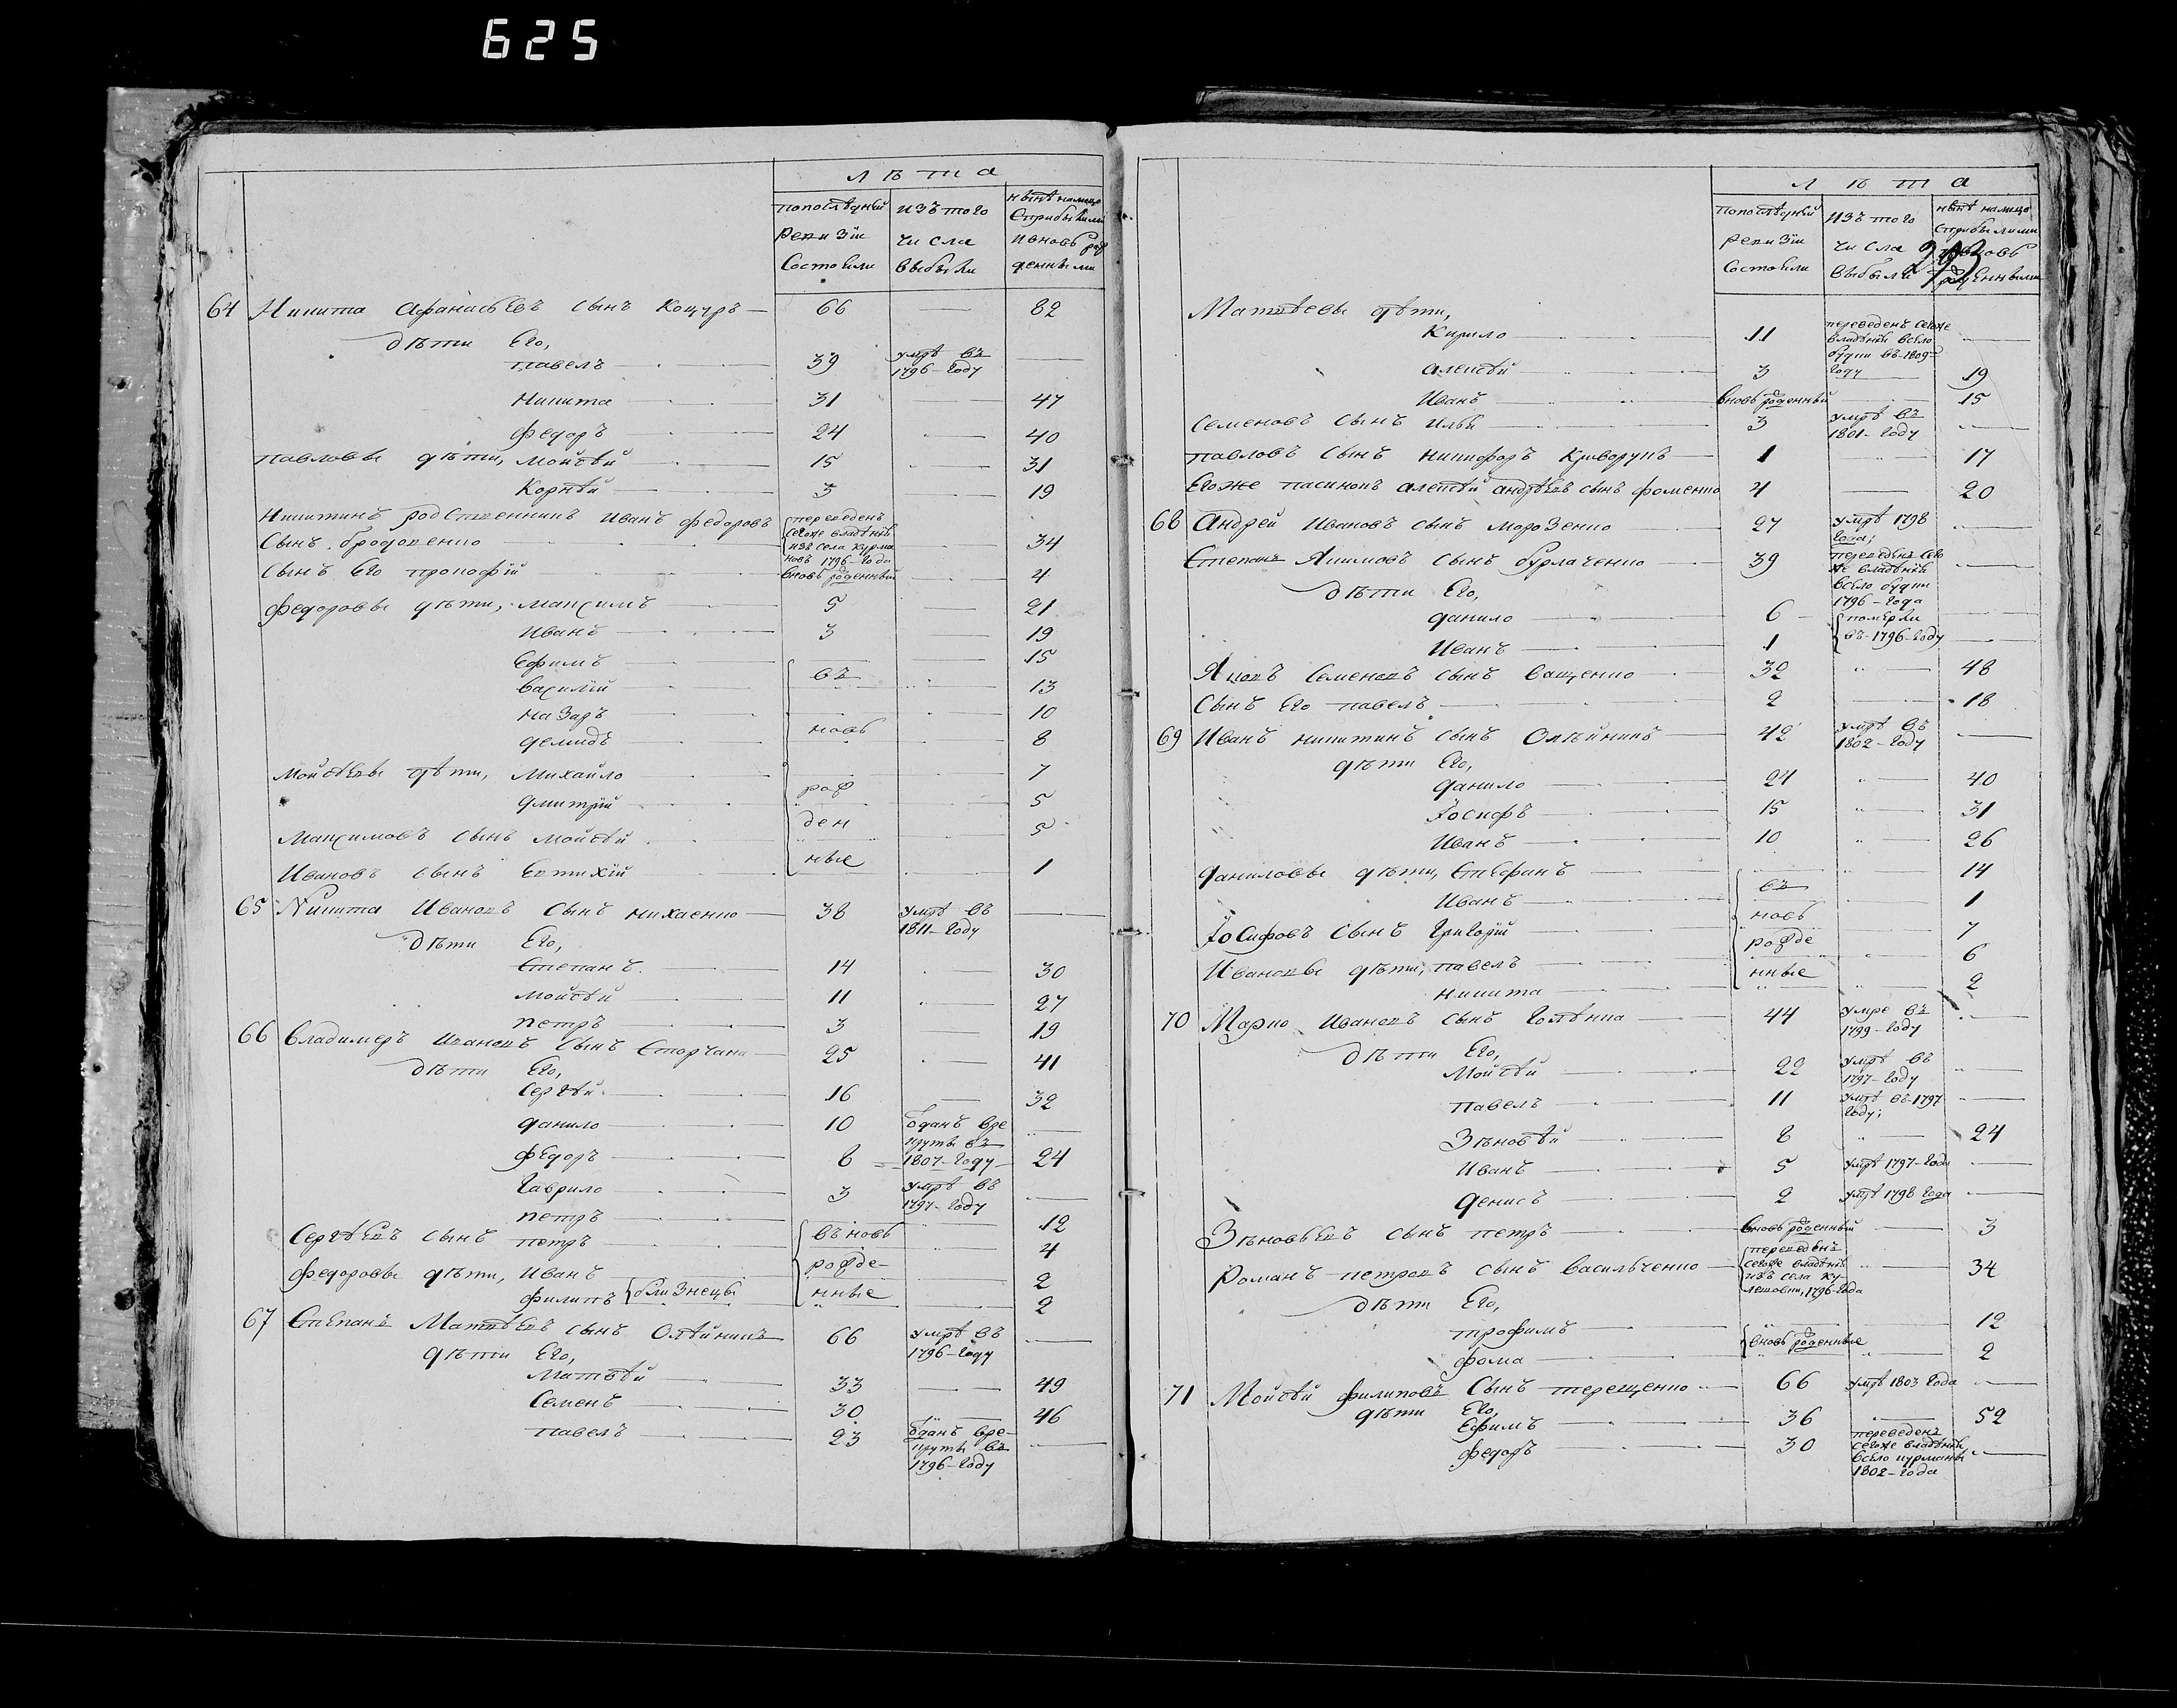 625
Лѣта
попослѣдней ревизіи состояли
изъ того числа выбыли
нынѣ налицо съприбылыми ивновь рожденными
64 Никита Афанасьевъ сынъ Коцуръ 66 — 82
дѣти Его,
павелъ 39 умрѣ въ 1796-году —
Никита 31 — 47
федоръ 24 — 40
павловы дѣти, мойсѣй 15 — 31
Корнѣй 3 — 19
Никитинъ родственникъ Иванъ федоровъ
Сынъ бродовенко переведенъ сегоже владѣнія изъ села курмановъ 1796-года — 34
Сынъ Его прокофій вновь рожденный — 4
федоровы дѣти, максимъ 5 — 21
Иванъ 3 — 19
Ефимъ — 15
василій въ — 13
назаръ — 10
демидъ новь — 8
мойсѣевы дѣти, михайло — 7
дмитрій рож — 5
Максимовъ сынъ мойсѣй ден — 5
Ивановъ сынъ Евтихій ные — 1
65 Никита Ивановъ сынъ михаенко 38 умрѣ въ 1811-году —
дѣти Его,
степанъ 14 — 30
мойсѣй 11 — 27
петръ 3 — 19
66 Владимеръ Ивановъ сынъ Сторчака 25 — 41
дѣти Его,
Сергѣй 16 — 32
данило 10 Отданъ врекруты въ 1807-году —
федоръ 8 — 24
гаврило 3 умрѣ въ 1797-году —
петръ — 12
Сергѣевъ сынъ петръ въновь — 4
федоровы дѣти, Иванъ рожде — 2
филипъ близнецы нные — 2
67 Степанъ Матвѣевъ сынъ Олѣйникъ 66 умрѣ въ 1796-году —
дѣти Его,
матвѣй 33 — 49
Семенъ 30 — 46
павелъ 23 Отданъ врекруты въ 1796-году —
Лѣта
попослѣдней ревизіи состояли
изъ того числа выбыли
нынѣ налицо съприбылыми ивновь рожденными
Матвѣевы дѣти,
Кирило 11 переведенъ сегоже владѣнія всело будки въ-1809-году —
алексѣй 3 — 19
Иванъ вновь рожденный — 15
Семеновъ сынъ Илья 3 умрѣ въ 1801-году —
павловъ сынъ никифоръ Криворукъ 1 — 17
Егоже пасинокъ алексѣй андрѣевъ сынъ фоменко 4 — 20
68 Андрей Ивановъ сынъ морозенко 27 умрѣ 1798 года; —
Степанъ Якимовъ сынъ бурлаченко 39 переведенъ сегоже владѣнія всело будки 1796-года —
дѣти Его,
данило 6 померли —
Иванъ 1 въ-1796-году —
Яковъ Семеновъ сынъ ващенко 32 — 48
Сынъ Его павелъ 2 — 18
69 Иванъ никитинъ сынъ Олѣйникъ 42 умрѣ въ 1802-году —
дѣти Его,
данило 24 — 40
Іосифъ 15 — 31
Иванъ 10 — 26
даниловы дѣти, стефанъ въ — 14
Иванъ новь — 1
Іосифовъ сынъ григорій рожде — 7
Ивановы дѣти, павелъ нные — 6
никита — 2
70 Марко Ивановъ сынъ голѣнка 44 умре въ 1799-году —
дѣти Его,
Мойсѣй 22 умрѣ въ 1797-году —
павелъ 11 умрѣ въ-1797 году; —
Зѣновѣй 8 — 24
Иванъ 5 умрѣ 1797-года —
денисъ 2 умрѣ 1798 года —
Зѣновьевъ сынъ петръ вновь рожденный — 3
Романъ петровъ сынъ васильченко переведенъ сегоже владѣнія изъ села кулешовки, 1796-года — 34
дѣти Его,
трофимъ — 12
фома вновь рожденные — 2
71 Мойсѣй филиповъ сынъ терещенко 66 умрѣ 1803 года —
дѣти Его,
Ефимъ 36 — 52
федоръ 30 переведенъ сегоже владѣнія всело курманы 1802-года —